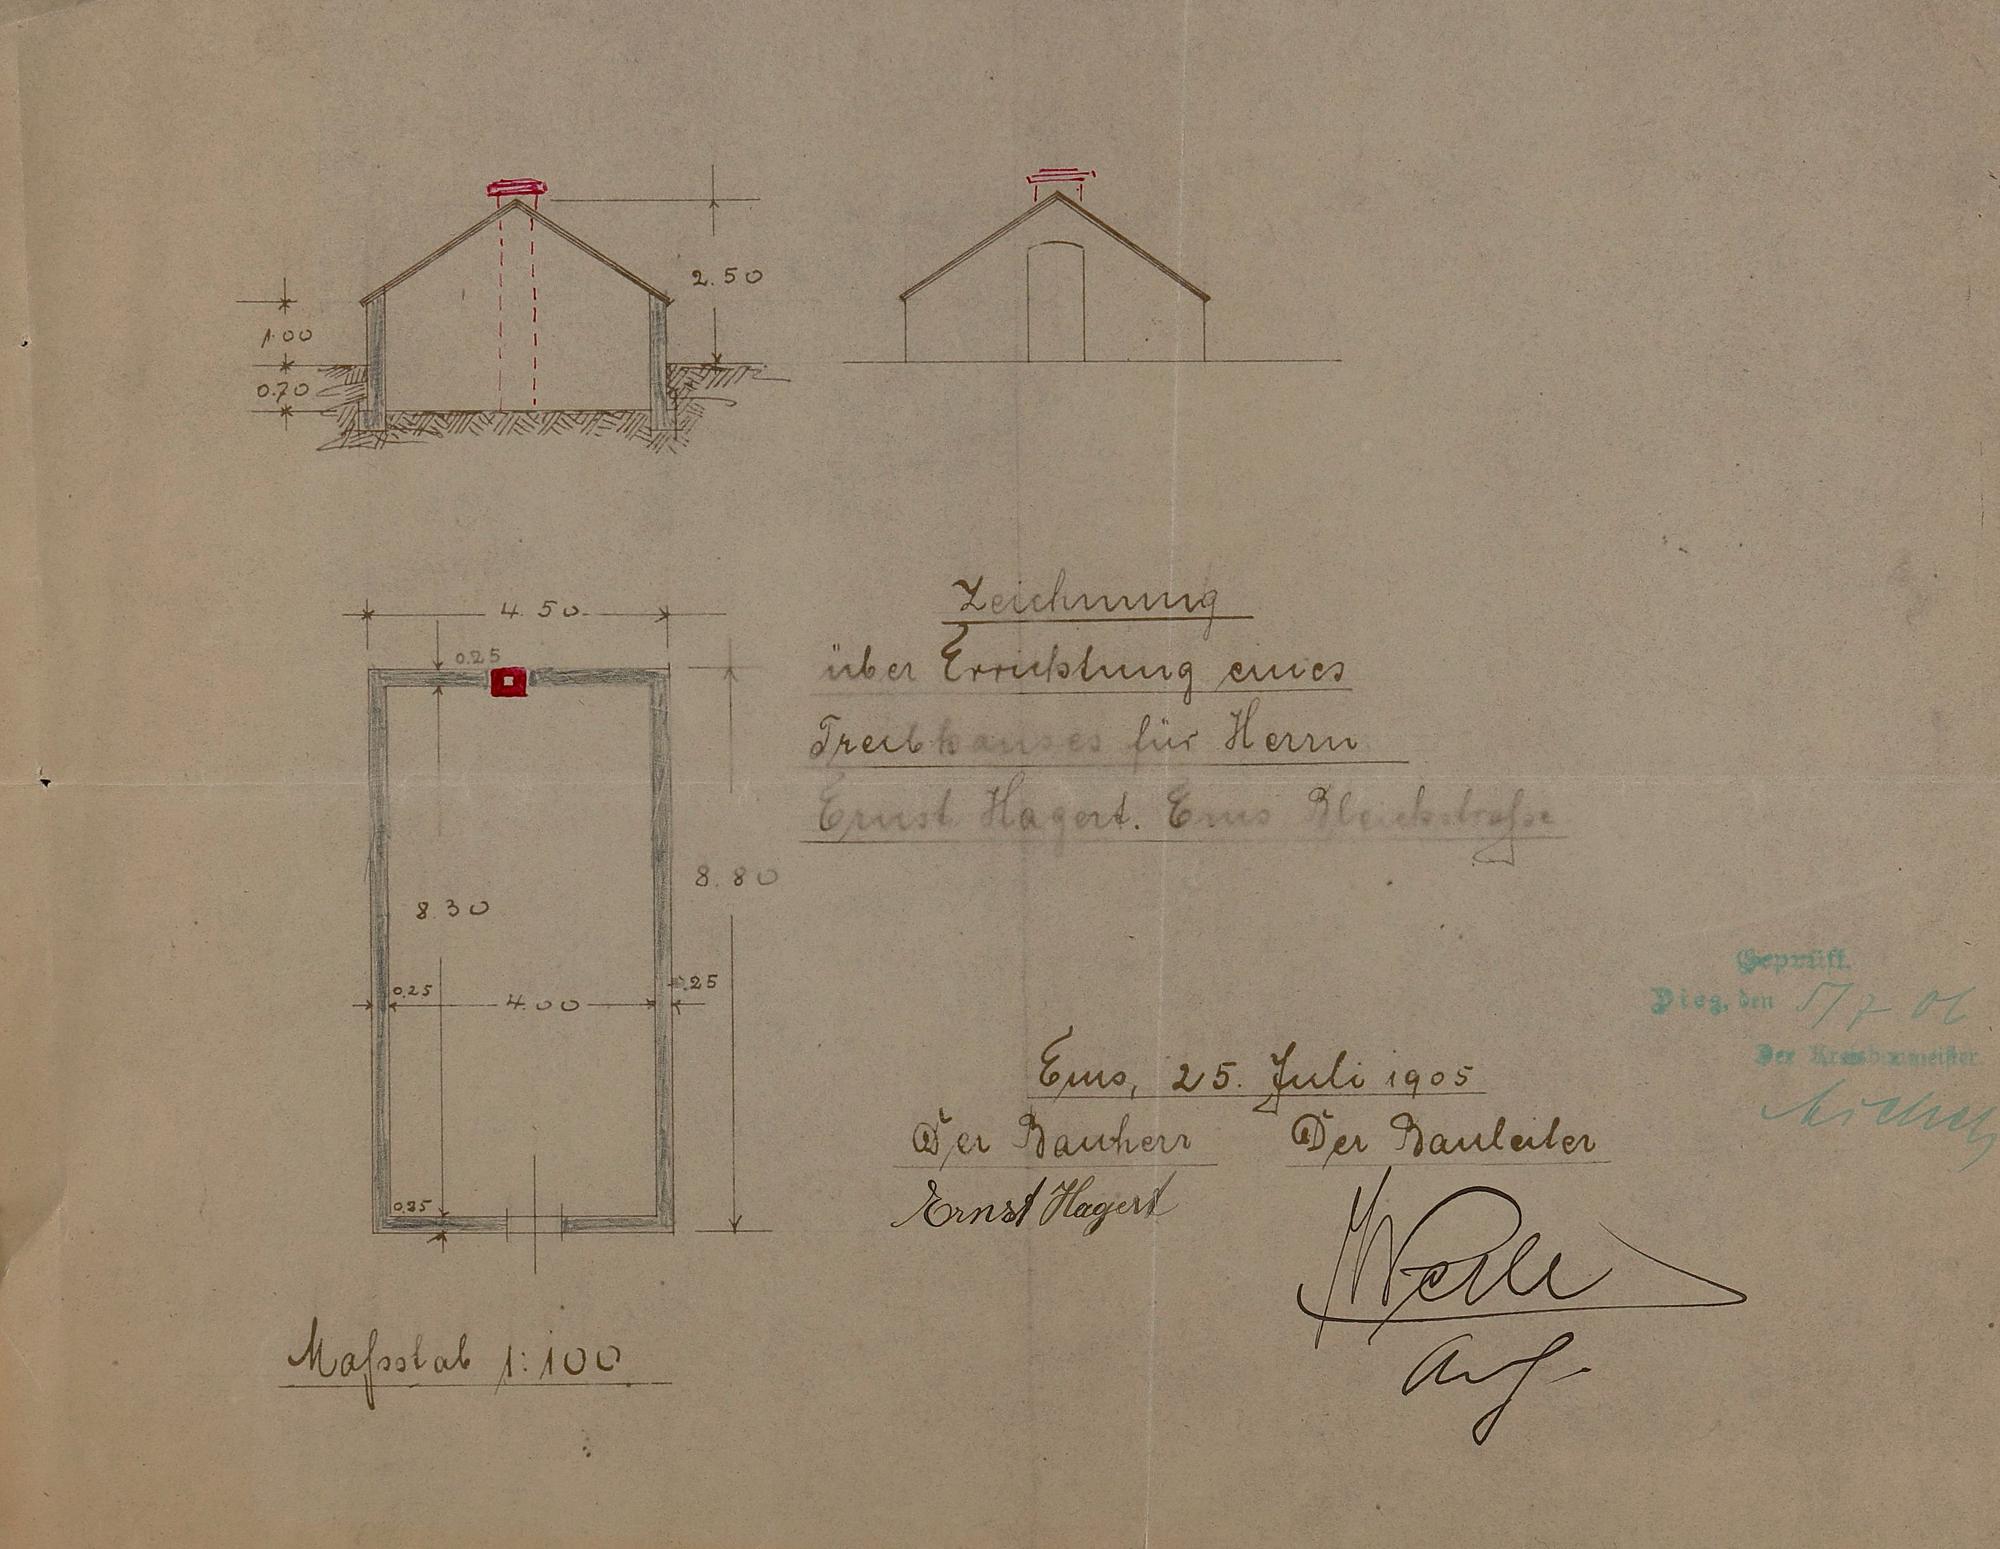 2.50
1.00
0.70
4.50
0.25
8.80
8.30
0.25
4.00
0.25
0.25
Maßstab 1:100
Zeichnung
über Errichtung eines
Treibhauses für Herrn
Ernst Hagert. Ems Bleichstraße
Ems, 25. Juli 1905
Der Bauherr
Ernst Hagert
Der Bauleiter
Geprüft.
Diez, den 5/7 06
Der Kreisbaumeister